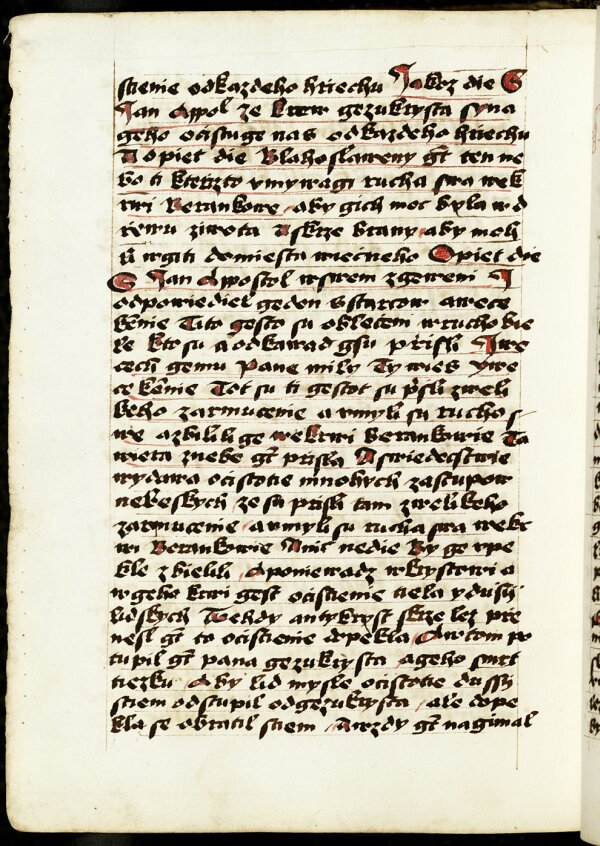 stienie odkazdeho hriechu Jakoz die S
Jan Appol ze krew gezukrysta syna
geho ocistuge nas odkazdeho hriechu
A opiet die Blahoslaweny gt ten ne
bo ti kterzto vmywagi rucha swa wek
rwi Berankowe aby gich moc byla wd
rewu ziwota A skrze brany aby mohl
li wgiti domiesta wiecneho Opiet die
S Jan Appostol wswem zgeweni J
odpowiediel geden sstarcow a wece
kemie Tito gesto su obleceni wrucho bie
le kto su a odkawad gsu prissli J we
cech gemu Pane mily Ty wies Y we
ce kemie Tot su ti gestot su prissli zweli
keho zarmucenie a vmyli su rucho s
we a zbilili ge wekrwi Berankowie Ta
wiera znebe gt prissla A swiedectwie
wydawa ocistotie mnohych zastupow
nebeskych ze su prissli tam zwelikeho
zarmucenie a vmyli su rucha swa wekr
wi Berankowie Anic nedie By ge wpe
kle zbielili A poniewadz wkrystowi a
wgeho krwi gest ocistienie tiela y dussij
lidskych Tehdy antykryst skrze lez pre
nesl gt to ocistienie dopekla A wtom po
tupil gt pana gezukrysta ageho smrt
tiezku Aby lid mysle ocistotie dussij
stiem odstupil odgezukrysta ale dope
kla se obratil stiem A wzdy gt nagimal